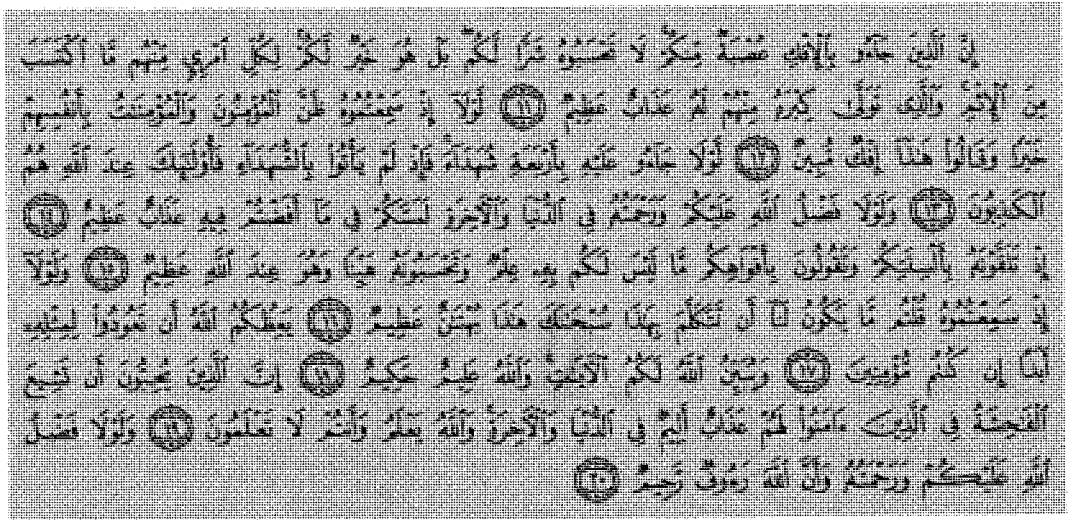 إِنَّ ٱلَّذِينَ جَآءُو بِٱلْإِفْكِ عُصْبَةٌ مِّنكُمْ لَا تَحْسَبُوهُ شَرًّا لَّكُم بَلْ هُوَ خَيْرٌ لَّكُمْ لِكُلِّ ٱمْرِئٍ مِّنْهُم مَّا ٱكْتَسَبَ
مِنَ ٱلْإِثْمِ وَٱلَّذِى تَوَلَّىٰ كِبْرَهُۥ مِنْهُمْ لَهُۥ عَذَابٌ عَظِيمٌ ١١ لَّوْلَآ إِذْ سَمِعْتُمُوهُ ظَنَّ ٱلْمُؤْمِنُونَ وَٱلْمُؤْمِنَٰتُ بِأَنفُسِهِمْ
خَيْرًا وَقَالُوا۟ هَٰذَآ إِفْكٌ مُّبِينٌ ١٢ لَّوْلَا جَآءُو عَلَيْهِ بِأَرْبَعَةِ شُهَدَآءَ فَإِذْ لَمْ يَأْتُوا۟ بِٱلشُّهَدَآءِ فَأُو۟لَٰٓئِكَ عِندَ ٱللَّهِ هُمُ
ٱلْكَٰذِبُونَ ١٣ وَلَوْلَا فَضْلُ ٱللَّهِ عَلَيْكُمْ وَرَحْمَتُهُۥ فِى ٱلدُّنْيَا وَٱلْءَاخِرَةِ لَمَسَّكُمْ فِى مَآ أَفَضْتُمْ فِيهِ عَذَابٌ عَظِيمٌ ١٤
إِذْ تَلَقَّوْنَهُۥ بِأَلْسِنَتِكُمْ وَتَقُولُونَ بِأَفْوَاهِكُم مَّا لَيْسَ لَكُم بِهِۦ عِلْمٌ وَتَحْسَبُونَهُۥ هَيِّنًا وَهُوَ عِندَ ٱللَّهِ عَظِيمٌ ١٥ وَلَوْلَآ
إِذْ سَمِعْتُمُوهُ قُلْتُم مَّا يَكُونُ لَنَآ أَن نَّتَكَلَّمَ بِهَٰذَا سُبْحَٰنَكَ هَٰذَا بُهْتَٰنٌ عَظِيمٌ ١٦ يَعِظُكُمُ ٱللَّهُ أَن تَعُودُوا۟ لِمِثْلِهِۦٓ
أَبَدًا إِن كُنتُم مُّؤْمِنِينَ ١٧ وَيُبَيِّنُ ٱللَّهُ لَكُمُ ٱلْءَايَٰتِ وَٱللَّهُ عَلِيمٌ حَكِيمٌ ١٨ إِنَّ ٱلَّذِينَ يُحِبُّونَ أَن تَشِيعَ
ٱلْفَٰحِشَةُ فِى ٱلَّذِينَ ءَامَنُوا۟ لَهُمْ عَذَابٌ أَلِيمٌ فِى ٱلدُّنْيَا وَٱلْءَاخِرَةِ وَٱللَّهُ يَعْلَمُ وَأَنتُمْ لَا تَعْلَمُونَ ١٩ وَلَوْلَا فَضْلُ
ٱللَّهِ عَلَيْكُمْ وَرَحْمَتُهُۥ وَأَنَّ ٱللَّهَ رَءُوفٌ رَّحِيمٌ ٢٠